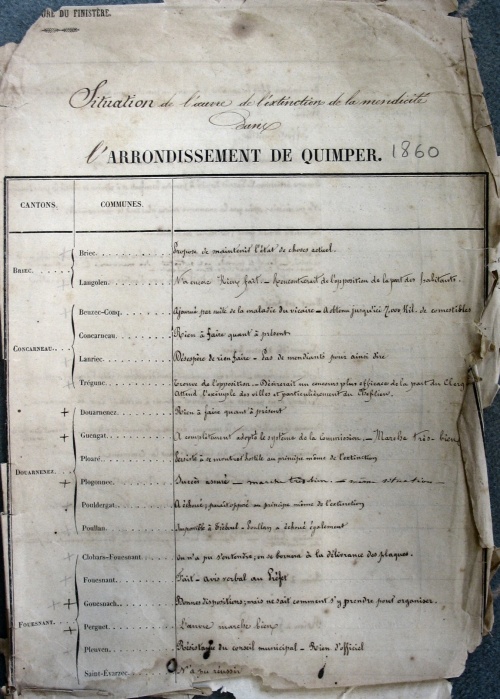 URE DU FINISTÈRE.
Situation de l'œuvre de l'extinction de la mendicité
dans
l'ARRONDISSEMENT DE QUIMPER. 1860
CANTONS. COMMUNES.
BRIEC.
Briec. Propose de maintenir l'état de choses actuel.
Langolen. N'a encore Rien fait. — Rencontrerait de l'opposition de la part des habitants.
CONCARNEAU.
Beuzec-Conq. Ajourné par suite de la maladie du vicaire — A obtenu jusqu'ici 7,000 Kil. de comestibles
Concarneau. Rien à faire quant à présent
Lanriec. Désespère de rien faire — Pas de mendiants pour ainsi dire
Trégunc. Trouve de l'opposition — Désirerait un concours plus efficace de la part du Clergé
Attend l'exemple des villes et particulièrement du
DOUARNENEZ.
+ Douarnenez. Rien à faire quant à présent
+ Guengat. A complètement adopté le système de la Commission. — Marche très-bien
Ploaré. Persiste à se montrer hostile au principe même de l'extinction
+ Plogonnec. Succès assuré — marche très bien — situation —
Pouldergat. A échoué; parait opposé au principe même de l'extinction
Poullan. Impossible à Tréboul — Poullan a échoué également
FOUESNANT.
Clohars-Fouesnant. On n'a pu s'entendre; on se bornera à la délivrance des plaques.
Fouesnant. Fait — avis verbal au Préfet
+ Gouesnach. Bonnes dispositions; mais ne sait comment s'y prendre pour organiser.
+ Perguet. L'œuvre marche bien
Pleuven. Résistance du conseil municipal — Rien d'officiel
Saint-Évarzec. N'a pu réussir